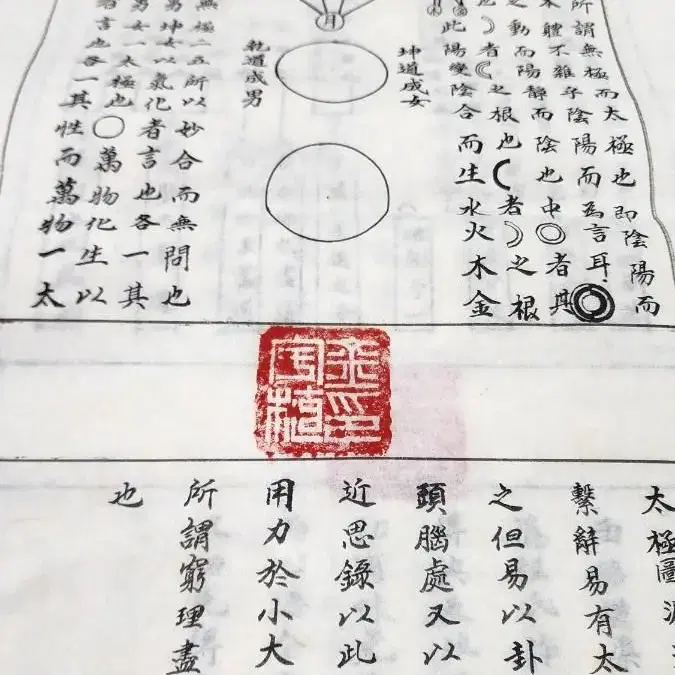 所謂無極而太極也即陰陽而
本體不雜乎陰陽而爲言耳◎
之動而陽靜而陰也中◎者其
也☽者☾之根也☾者☽之根
此陽變陰合而生水火木金
坤道成女
乾道成男
無極二五所以妙合而無間也
男坤女以氣化者言也各一其
男女一太極也○萬物化生以
者言也各一其性而萬物一太
太極圖
繫辭易有太
之但易以卦
頭腦處又以
近思錄以此
用力於小大
所謂窮理盡
也